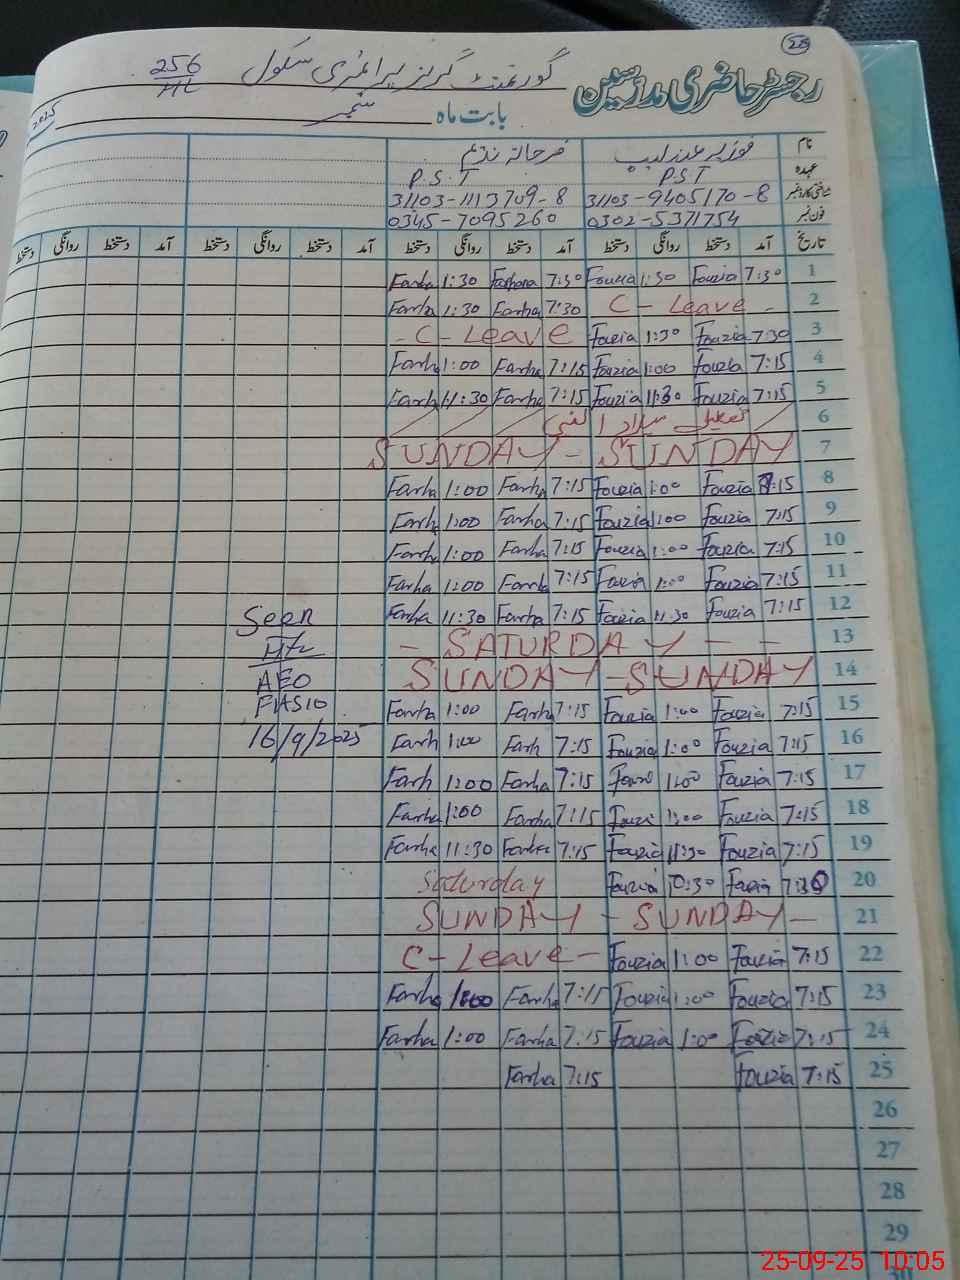 28
رجسٹر حاضری مدرسین
گورنمنٹ گرلز پرائمری سکول 256/HL
بابت ماہ ستمبر 2025
نام فوزیہ عندلیب فرحانہ ندیم
عہدہ P.S.T P.S.T
شناختی کارڈ نمبر 31103-9405170-8 31103-1113709-8
فون نمبر 0302-5371754 0345-7095260
تاریخ آمد دستخط روانگی دستخط آمد دستخط روانگی دستخط آمد دستخط روانگی دستخط آمد دستخط روانگی دستخط
Farha 1:30 Farhana 7:30 Fouzia 1:30 Fouzia 7:30 1
Farha 1:30 Farha 7:30 C - Leave - 2
- C - Leave Fouzia 1:30 Fouzia 7:30 3
Farha 1:00 Farha 7:15 Fouzia 1:00 Fouzia 7:15 4
Farha 11:30 Farha 7:15 Fouzia 11:30 Fouzia 7:15 5
تعطیل میلاد النبی 6
SUNDAY - SUNDAY 7
Farha 1:00 Farha 7:15 Fouzia 1:00 Fouzia 7:15 8
Farha 1:00 Farha 7:15 Fouzia 1:00 Fouzia 7:15 9
Farha 1:00 Farha 7:15 Fouzia 1:00 Fouzia 7:15 10
Farha 1:00 Farha 7:15 Fouzia 1:00 Fouzia 7:15 11
Farha 11:30 Farha 7:15 Fouzia 11:30 Fouzia 7:15 12
Seen
- SATURDAY - - 13
AEO
SUNDAY - SUNDAY 14
Farha 1:00 Farha 7:15 Fouzia 1:00 Fouzia 7:15 15
16/9/2025
Farh 1:00 Farh 7:15 Fouzia 1:00 Fouzia 7:15 16
Farh 1:00 Farha 7:15 Fouzi 1:00 Fouzia 7:15 17
Farha 1:00 Farha 7:15 Fouzi 1:00 Fouzia 7:15 18
Farha 11:30 Farha 7:15 Fouzia 11:30 Fouzia 7:15 19
Saturday Fouzia 10:30 Fouzia 7:30 20
SUNDAY - SUNDAY - 21
C - Leave - Fouzia 1:00 Fouzia 7:15 22
Farha 1:00 Farha 7:15 Fouzia 1:00 Fouzia 7:15 23
Farha 1:00 Farha 7:15 Fouzia 1:00 Fouzia 7:15 24
Farha 7:15 Fouzia 7:15 25
26
27
28
29
25-09-25 10:05